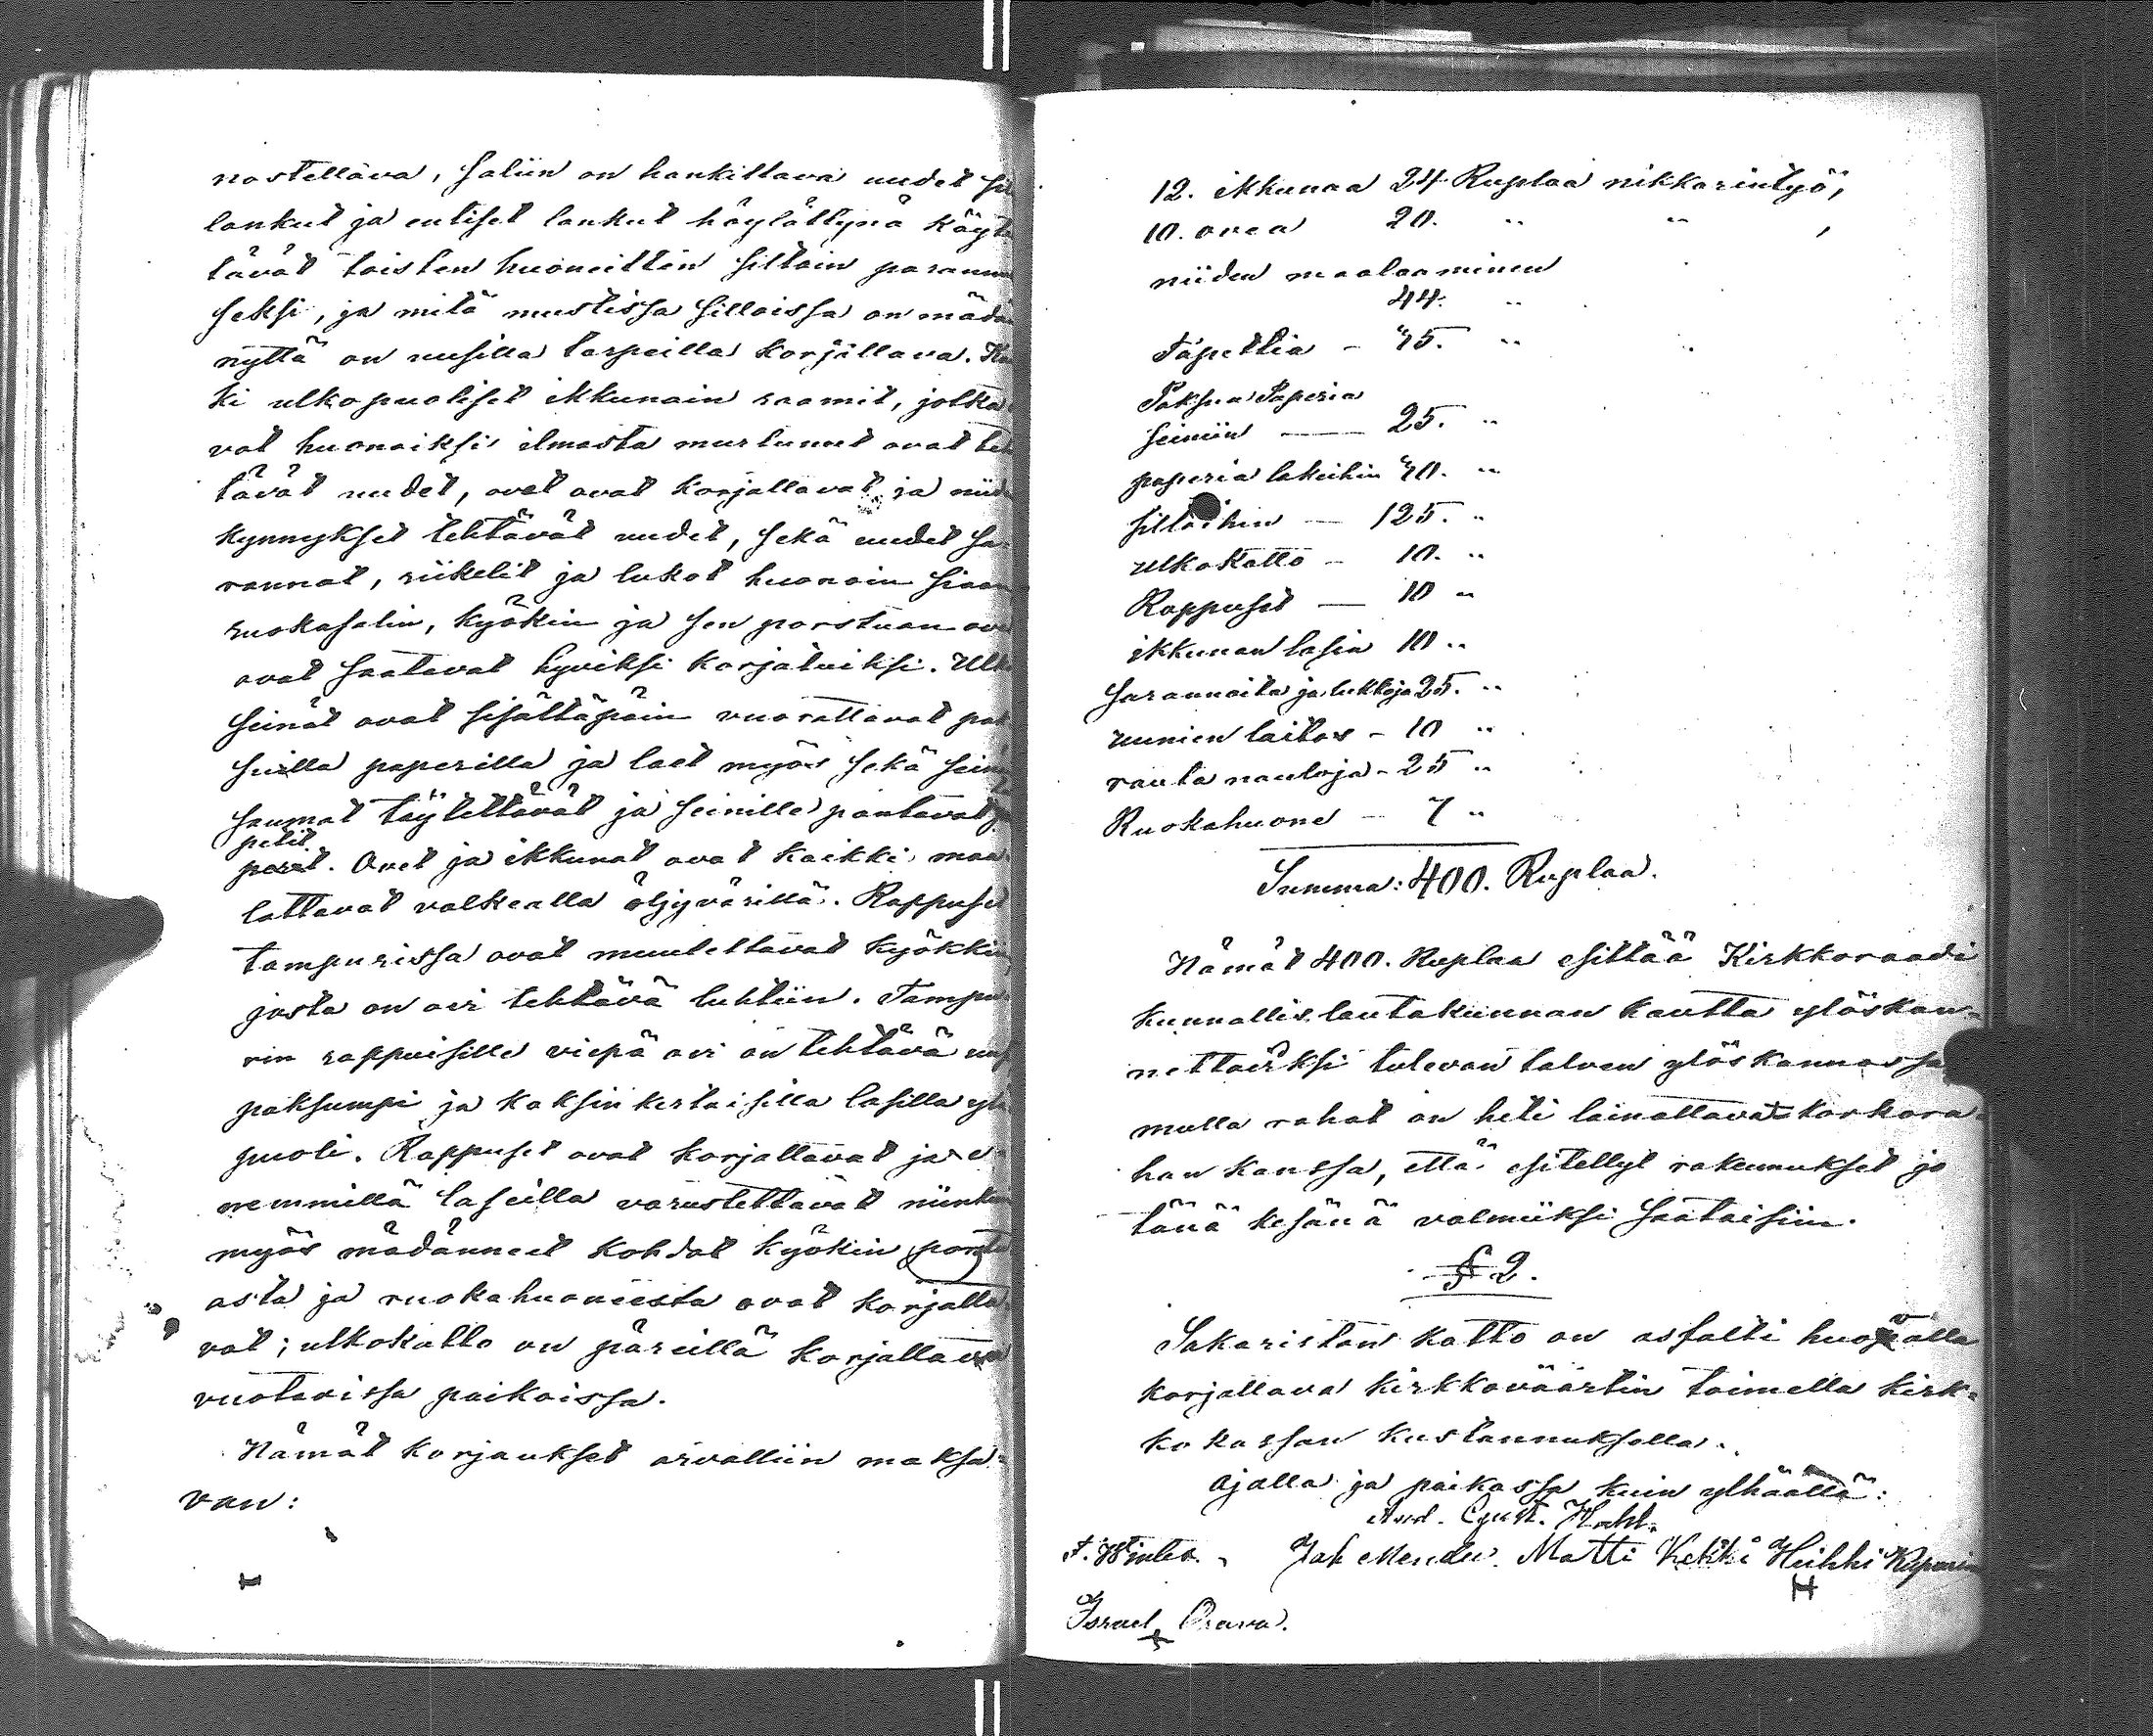 nostellava, saliin on hankittava uudet sil
lankut ja entiset lankut höylättynä käyte
tävät toisten huoneitten siltain parannu
seksi, ja mitä mustissa silloissa on mädä
nyttä on uusilla tarpeilla korjattava. Kai
ki ulkopuoliset ikkunain raamit, jotka
vat huonoiksi ilmasta murtunut ovat teh
tävät uudet, ovet ovat korjattavat ja niide
kynnykset tehtävät uudet, sekä uudet sa-
rannat, riikelit ja lukot huonoin siaan
ruokasalin, kyökin ja sen porstuan ove
ovat saatavat hyviksi korjatuiksi. Ulko
seinät ovat sisältäpäin vuorattavat pak
suilla paperilla ja laet myös sekä sein
saumat täytettävät ja seinille pantavat
petit
perit. Ovet ja ikkunat ovat kaikki maa
lattavat valkealla öljyvärillä. Rappuset
tampurissa ovat muutettavat kyökkiin
josta on ovi tehtävä luhtiin. Tampu
rin rappuisille viepä ovi on tehtävä uusi
paksumpi ja kaksinkertaisilla lasilla ylä
puoli. Rappuset ovat korjattavat ja e-
nemmillä laseilla varustettavat niinkuin
myös mädänneet kohdat kyökin porstu
asta ja ruokahuoneesta ovat korjatta
vat; ulkokatto on päreillä korjattava
vuotavissa paikoissa.
Nämät korjaukset arvattiin maksa-
van:
12. ikkunaa 24 Ruplaa nikkarintyö,
10. ovea 20. " "
niiden maalaaminen
44. "
Tapettia - 45. "
Paksua Paperia
seiniin — 25. "
paperia lakeihin 20. "
siltoihin — 125. "
ulkokatto - 10. "
Rappuset — 10 "
ikkunan lasia 10 "
sarannoita ja lukkoja 25. "
uunien laitos - 10 "
rauta nauloja - 25 "
Ruokahuone - 7 "
Summa: 400. Ruplaa.
Nämät 400. Ruplaa esittää Kirkkoraadi
kunnallis lautakunnan kautta ylöskan-
nettavaksi tulevan talven ylöskannossa
mutta rahat on heti lainattavat korkora-
han kanssa, että esitellyt rakennukset jo
tänä kesänä valmiiksi saataisiin.
§ 2.
Sakaristan katto on asfalti huovalla
korjattava kirkkoväärtin toimella kirk-
ko kassan kustannuksella.
Ajalla ja paikassa kuin ylhäällä:
And. Gust. Hahl.
Jak Mender. Matti Kekki Heikki
Israel Orava.